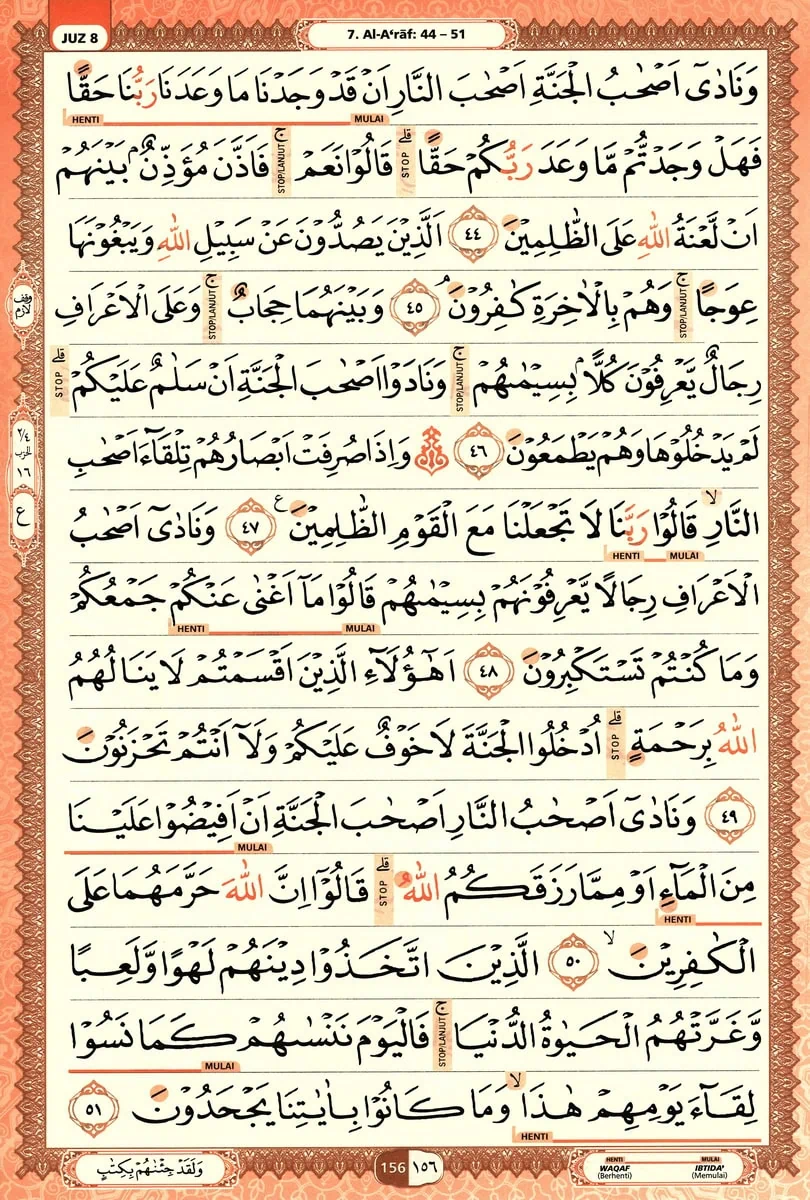 JUZ 8
7. Al-A‘rāf: 44 – 51
وَنَادٰىٓ اَصْحٰبُ الْجَنَّةِ اَصْحٰبَ النَّارِ اَنْ قَدْ وَجَدْنَا مَا وَعَدَنَا رَبُّنَا حَقًّا
MULAI HENTI
فَهَلْ وَجَدْتُّمْ مَّا وَعَدَ رَبُّكُمْ حَقًّا ۗ قَالُوْا نَعَمْ ۚ فَاَذَّنَ مُؤَذِّنٌۢ بَيْنَهُمْ
STOP STOP/LANJUT
اَنْ لَّعْنَةُ اللّٰهِ عَلَى الظّٰلِمِيْنَ ٤٤ الَّذِيْنَ يَصُدُّوْنَ عَنْ سَبِيْلِ اللّٰهِ وَيَبْغُوْنَهَا
عِوَجًا ۚ وَهُمْ بِالْاٰخِرَةِ كٰفِرُوْنَ ۘ ٤٥ وَبَيْنَهُمَا حِجَابٌ ۚ وَعَلَى الْاَعْرَافِ
STOP/LANJUT STOP/LANJUT
وقف لازم
رِجَالٌ يَّعْرِفُوْنَ كُلًّا ۢ بِسِيْمٰىهُمْ ۚ وَنَادَوْا اَصْحٰبَ الْجَنَّةِ اَنْ سَلٰمٌ عَلَيْكُمْ ۗ
STOP/LANJUT STOP
لَمْ يَدْخُلُوْهَا وَهُمْ يَطْمَعُوْنَ ٤٦ ۞ وَاِذَا صُرِفَتْ اَبْصَارُهُمْ تِلْقَاۤءَ اَصْحٰبِ
٢/٤ الحزب ١٦
ع
النَّارِ ۙ قَالُوْا رَبَّنَا لَا تَجْعَلْنَا مَعَ الْقَوْمِ الظّٰلِمِيْنَ ࣖ ٤٧ وَنَادٰىٓ اَصْحٰبُ
MULAI HENTI
الْاَعْرَافِ رِجَالًا يَّعْرِفُوْنَهُمْ بِسِيْمٰىهُمْ قَالُوْا مَآ اَغْنٰى عَنْكُمْ جَمْعُكُمْ
MULAI HENTI
وَمَا كُنْتُمْ تَسْتَكْبِرُوْنَ ٤٨ اَهٰٓؤُلَاۤءِ الَّذِيْنَ اَقْسَمْتُمْ لَا يَنَالُهُمُ
اللّٰهُ بِرَحْمَةٍ ۗ اُدْخُلُوا الْجَنَّةَ لَا خَوْفٌ عَلَيْكُمْ وَلَآ اَنْتُمْ تَحْزَنُوْنَ
STOP
٤٩ وَنَادٰىٓ اَصْحٰبُ النَّارِ اَصْحٰبَ الْجَنَّةِ اَنْ اَفِيْضُوْا عَلَيْنَا
MULAI
مِنَ الْمَاۤءِ اَوْ مِمَّا رَزَقَكُمُ اللّٰهُ ۗ قَالُوْٓا اِنَّ اللّٰهَ حَرَّمَهُمَا عَلَى
HENTI STOP
الْكٰفِرِيْنَ ۙ ٥٠ الَّذِيْنَ اتَّخَذُوْا دِيْنَهُمْ لَهْوًا وَّلَعِبًا
وَّغَرَّتْهُمُ الْحَيٰوةُ الدُّنْيَا ۚ فَالْيَوْمَ نَنْسٰىهُمْ كَمَا نَسُوْا
STOP/LANJUT MULAI
لِقَاۤءَ يَوْمِهِمْ هٰذَا ۙ وَمَا كَانُوْا بِاٰيٰتِنَا يَجْحَدُوْنَ ٥١
HENTI
وَلَقَدْ جِئْنٰهُمْ بِكِتٰبٍ
156 ١٥٦
HENTI MULAI
WAQAF IBTIDA'
(Berhenti) (Memulai)